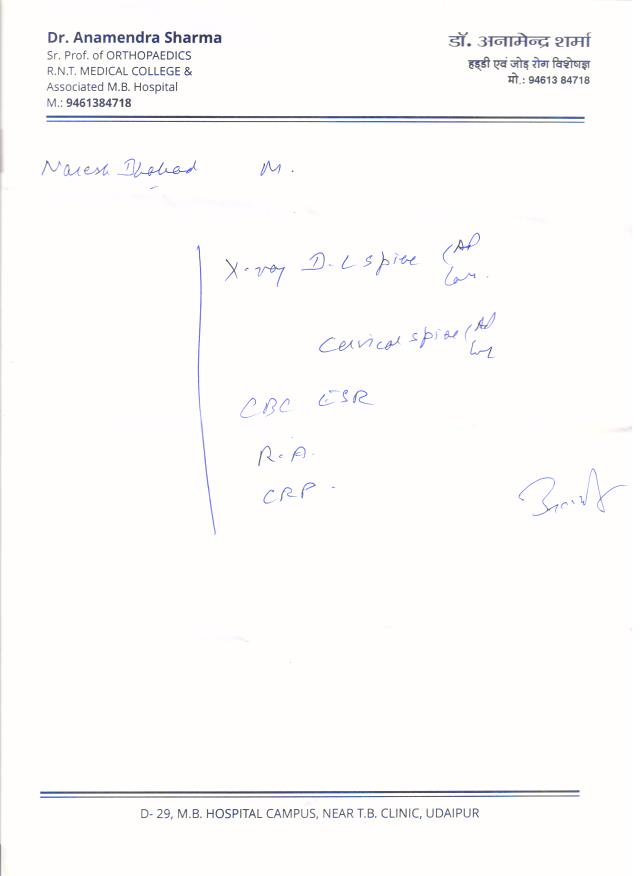 Dr. Anamendra Sharma
Sr. Prof. of ORTHOPAEDICS
R.N.T. MEDICAL COLLEGE &
Associated M.B. Hospital
M.: 9461384718
डॉ. अनामेन्द्र शर्मा
हड्डी एवं जोड़ रोग विशेषज्ञ
मो.: 94613 84718
Naresh M.
X-ray D-L spine (AP
Cervical spine (AP
CBC ESR
R.A.
CRP
D- 29, M.B. HOSPITAL CAMPUS, NEAR T.B. CLINIC, UDAIPUR